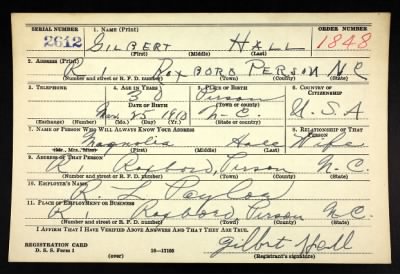 SERIAL NUMBER 1. NAME (Print) ORDER NUMBER
2612 GILBERT HALL 1848
(First) (Middle) (Last)
2. ADDRESS (Print)
R 1 ROXBORO PERSON N.C
(Number and street or R. F. D. number) (Town) (County) (State)
3. TELEPHONE 4. AGE IN YEARS 5. PLACE OF BIRTH 6. COUNTRY OF CITIZENSHIP
30 Person
DATE OF BIRTH (Town or county)
N.C. U.S.A
(Exchange) (Number) (Mo.) (Day) (Yr.) (State or country)
7. NAME OF PERSON WHO WILL ALWAYS KNOW YOUR ADDRESS 8. RELATIONSHIP OF THAT PERSON
Magnolia Hall Wife
(Mr., Mrs., Miss) (First) (Middle) (Last)
9. ADDRESS OF THAT PERSON
R 1 Roxboro, Person N.C.
(Number and street or R. F. D. number) (Town) (County) (State)
10. EMPLOYER'S NAME
R. L.
11. PLACE OF EMPLOYMENT OR BUSINESS
R 1 Roxboro Person N.C.
(Number and street or R. F. D. number) (Town) (County) (State)
I AFFIRM THAT I HAVE VERIFIED ABOVE ANSWERS AND THAT THEY ARE TRUE.
Gilbert Hall
REGISTRATION CARD
D. S. S. Form 1 (over) 16-17105 (Registrant's signature)